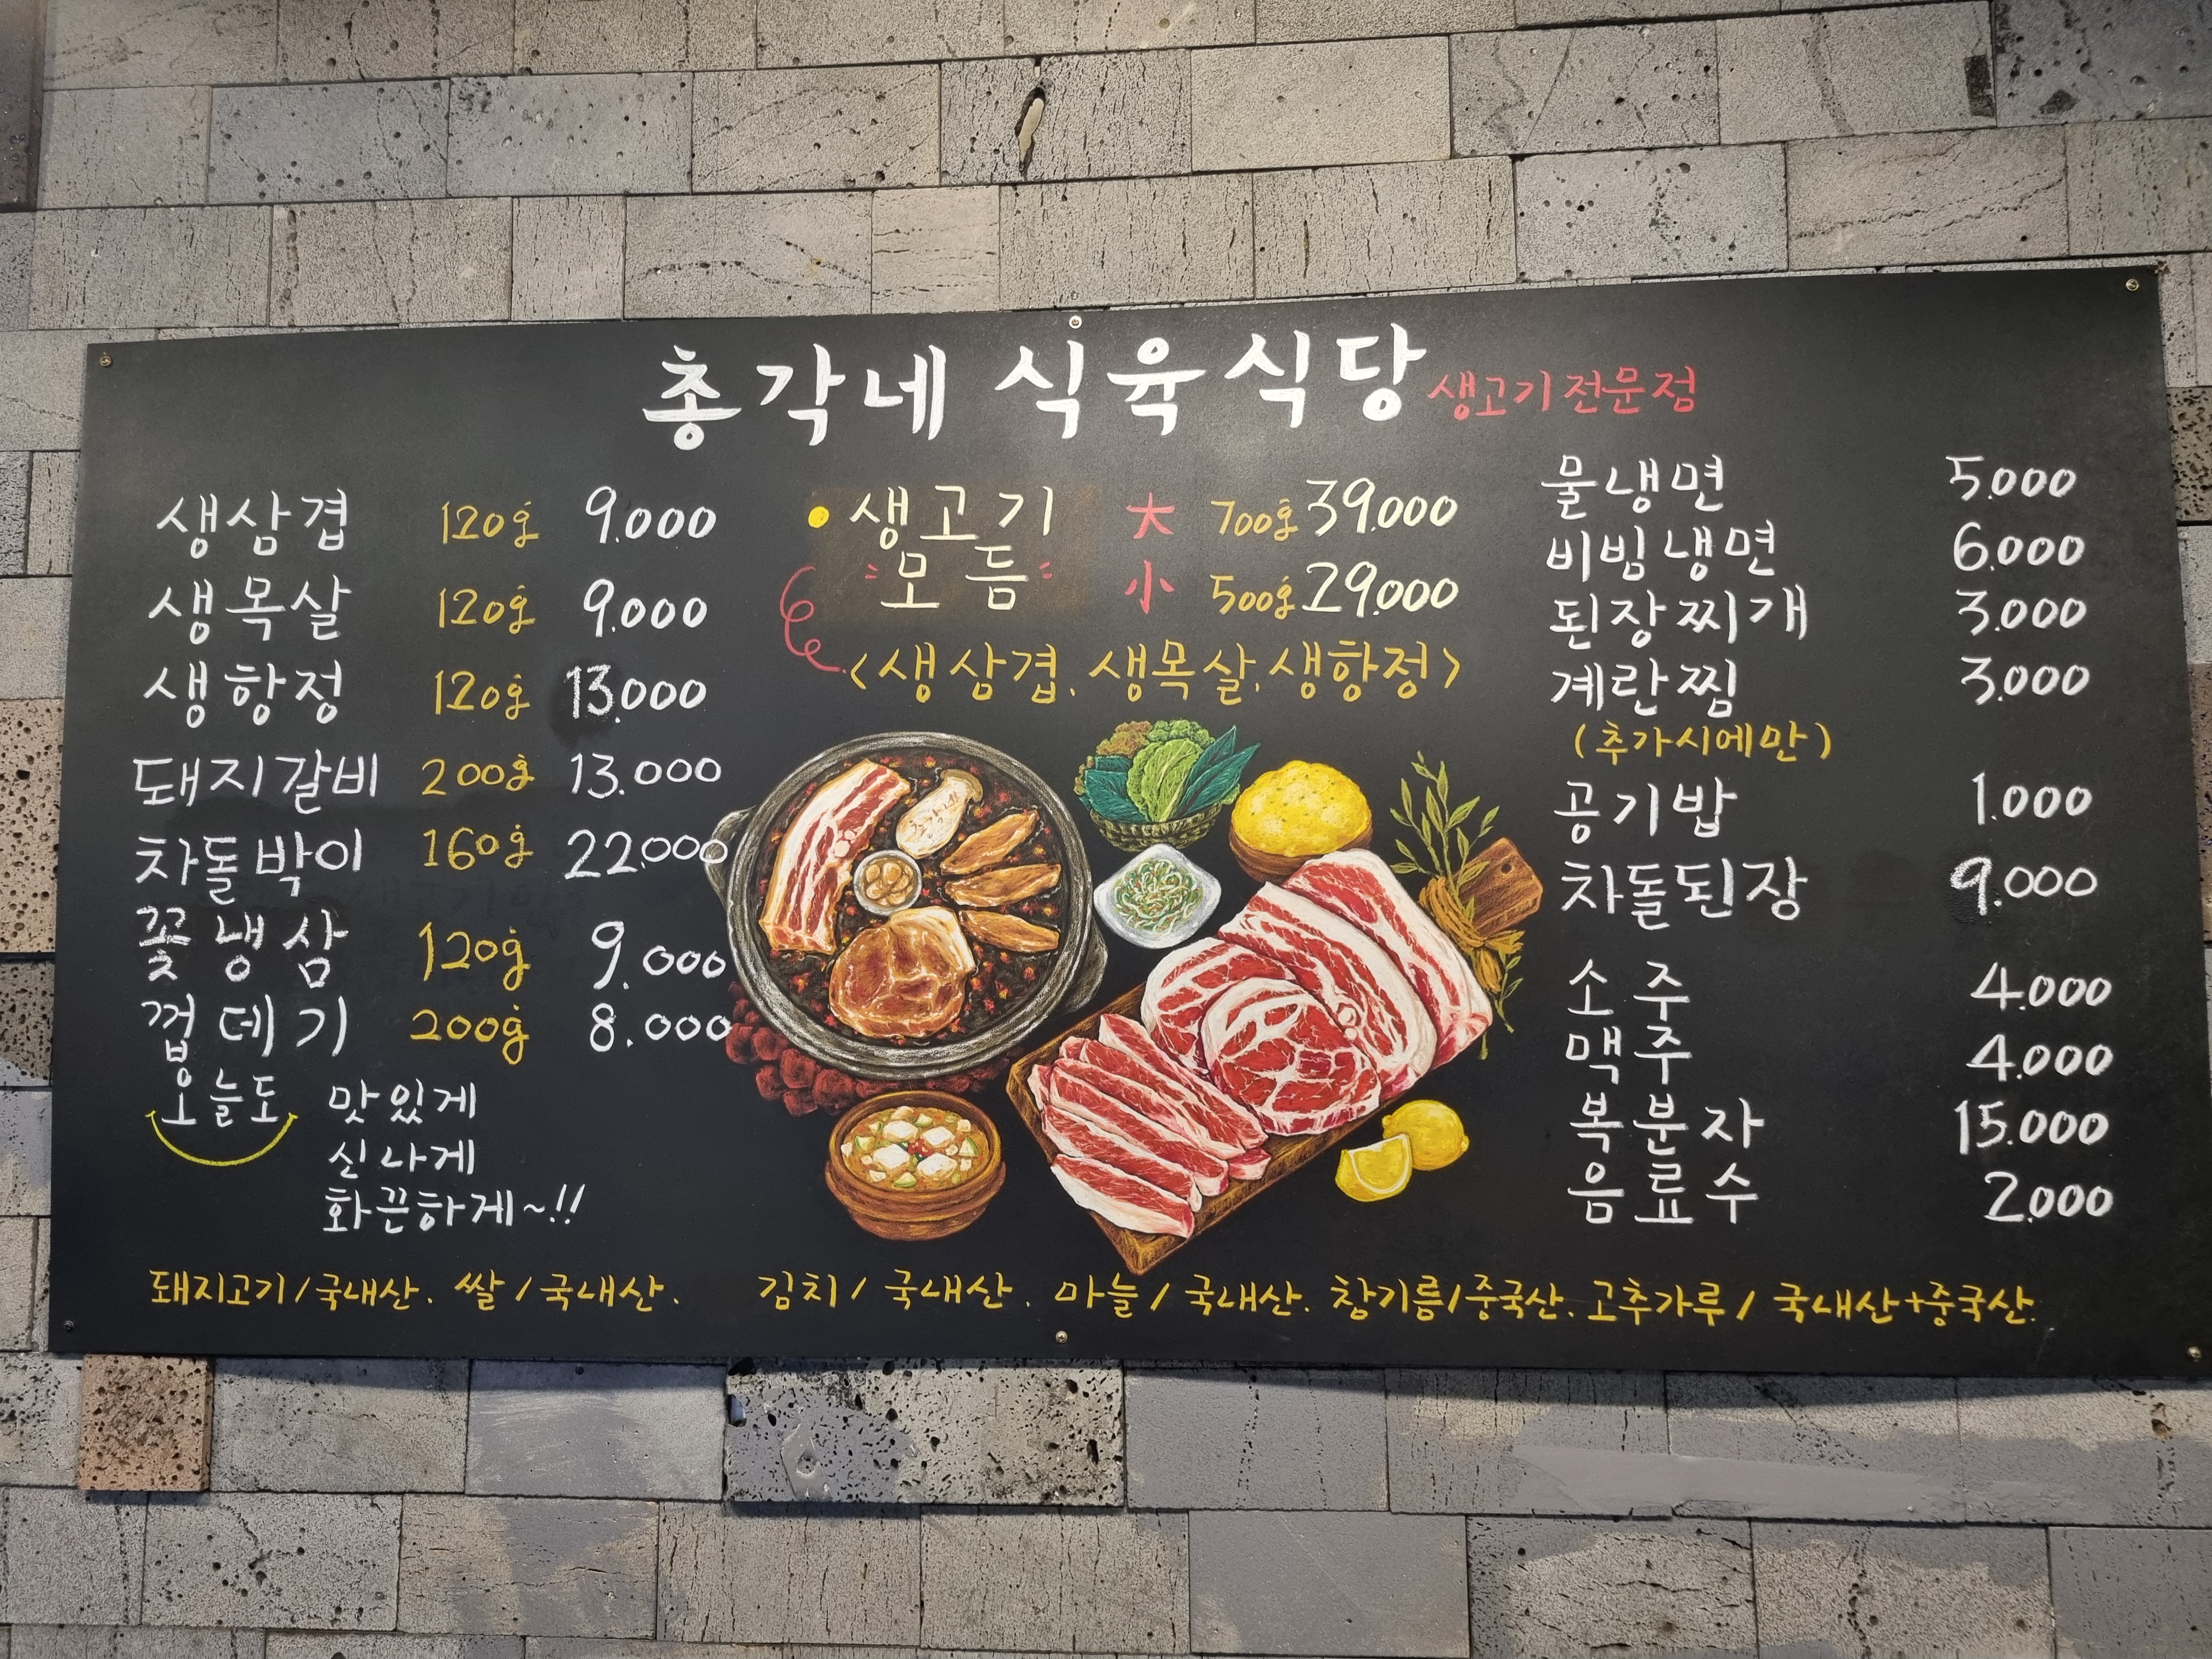 총각네 식육식당 생고기전문점
생삼겹 120g 9.000
생목살 120g 9.000
생항정 120g 13.000
돼지갈비 200g 13.000
차돌박이 160g 22.000
꽃냉삼 120g 9.000
껍데기 200g 8.000
오늘도 맛있게
신나게
화끈하게~!!
생고기 大 700g 39.000
모듬 小 500g 29.000
<생삼겹. 생목살. 생항정>
물냉면 5.000
비빔냉면 6.000
된장찌개 3.000
계란찜 3.000
(추가시에만)
공기밥 1.000
차돌된장 9.000
소주 4.000
맥주 4.000
복분자 15.000
음료수 2.000
돼지고기/국내산. 쌀/국내산. 김치/국내산. 마늘/국내산. 참기름/중국산. 고추가루/국내산+중국산.